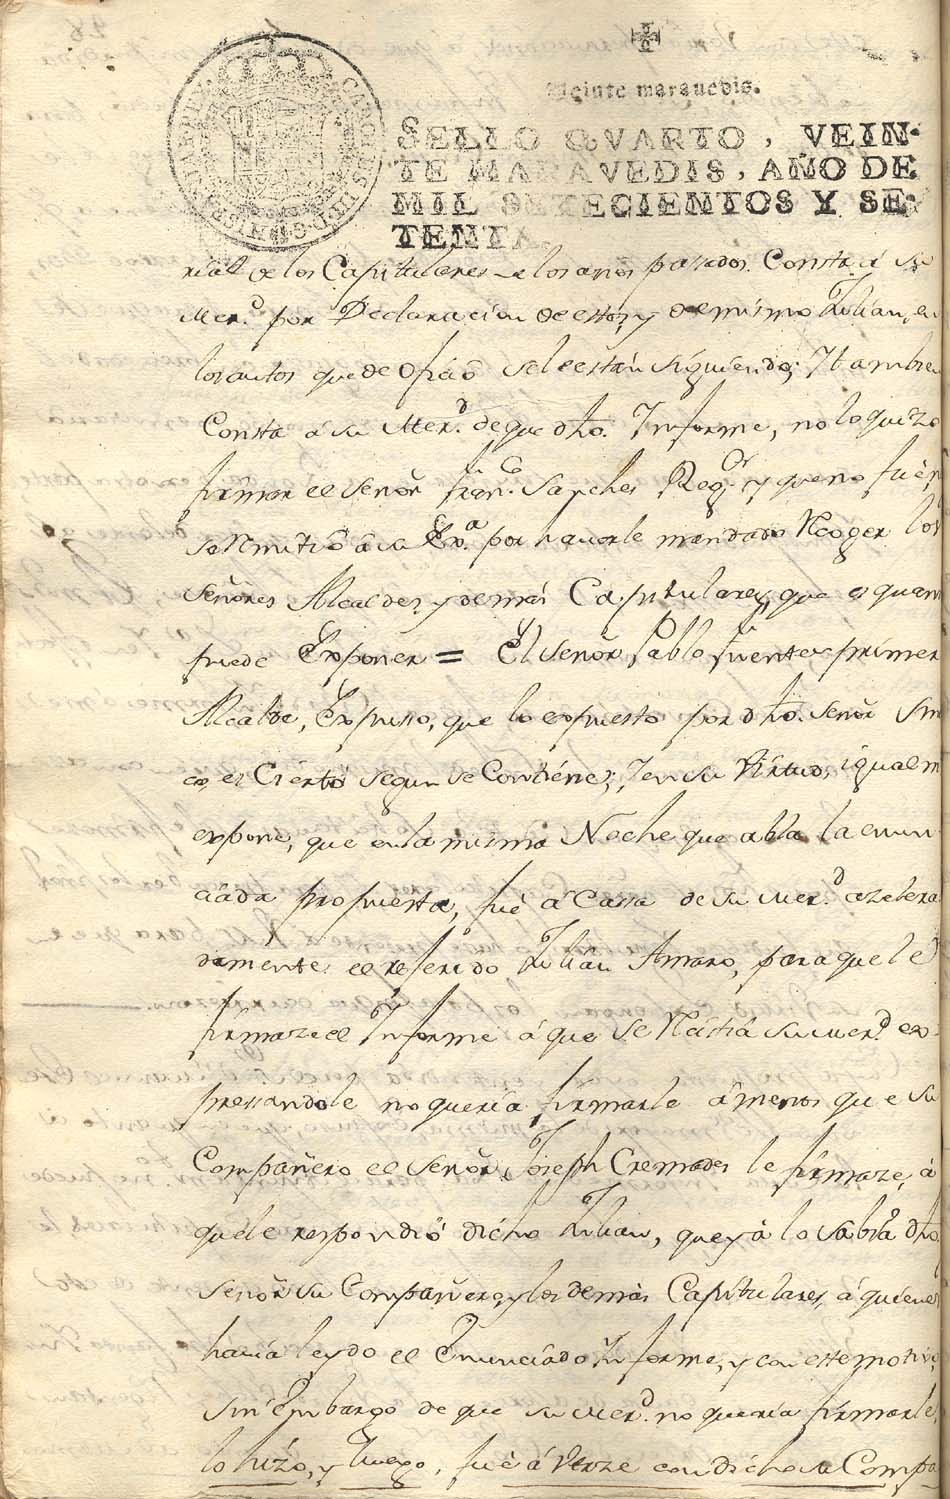 CAROLUS III D. G. HISPANIAR. REX
Veinte maravedis.
SELLO QVARTO, VEIN-
TE MARAVEDIS, AÑO DE
MIL SETECIENTOS Y SE-
TENTA.
rial de los Capitulares de los años pasados. Consta á su
Mer.d por Declaracion de estos, y de mismo Julian, en
los autos que de oficio se le estan siguiendo; Y tambien
Consta á su Mer.d de que dho. Informe, no lo quizo
firmar el Señor Fran.co Sanches Reg.or y que no fue
se Remitió á su Ex.a por haverle mandado Recoger los
Señores Alcaldes, y demás Capitulares, que es quanto
puede Exponer = El Señor Pablo Fuentes primer
Alcalde, Expuso, que lo expuesto por dho. Señor Sin
co, es Cierto segun se Contiene; Y en su Virtud, igualm
expone, que en la misma Noche que abla la enun-
ciada propuesta, fué á Cassa de su Mer.d azelera
damente el referido Julian Amaro, para que le
firmaze el Informe á que se Resistia su Mer.d ex-
pressandole no queria firmarle á menos que su
Compañero el Señor Joseph Cremades le firmaze, á
que le respondió dicho Julian, que yá lo sabia dho.
Señor su Compañero, y los demás Capitulares, á quienes
havia leydo el Enunciado Informe, y con este motivo,
sin Embargo de que su Mer.d no queria firmarle,
lo hizo, y luego, fué á Verze con dicho su Compa